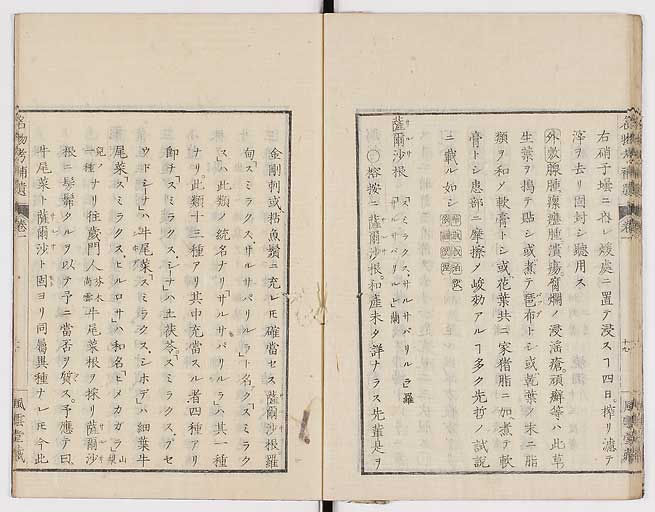 右硝子壜ニ容レ煖處ニ置テ浸スヿ四日。搾リ濾テ
滓ヲ去リ固封シ聽用ス
生葉ヲ搗テ貼シ或煮テ琶布トシ或乾葉ヲ末ニ脂
類ヲ和ノ軟膏トシ或花葉共ニ家猪脂ニ加煮テ軟
膏トシ患部ニ摩擦ノ峻効アルヿ多ク先哲ノ試説
ニ載ル如シ
薩爾沙根
スミラクス、サルサパリルラ 羅
サルサパリルレ 蘭
榕按ニ薩爾沙根。和産未タ詳ナラス先輩是ヲ
金剛刺或拈魚鬚ニ充レモ確當セス薩爾沙根羅
甸「スミラクス、サルサパリルラ」ト名クスミラク
ス」此類ノ統名ナリ「サルサパリルラ」ハ其一種
ナリ。此類十三種アリ其中充當スル者四種アリ
即チ「スミラクス、シナ」ハ土茯苓「スミラクス、プセ
ウドシーナ」ハ牛尾菜「スミラクス、シホデ」ハ細葉牛
尾菜「スミラクス、ヒルロサ」ハ和名「ヒメカガラ」
一種ノナリ往歳門人牛尾菜根ヲ採リ薩爾沙
根ニ髣髴タルヲ以テ予ニ當否ヲ質ス。予應テ曰、
牛尾菜ト薩爾沙ト固ヨリ同屬異種ナレモ今此
名物考補遺
卷一
風雲堂藏